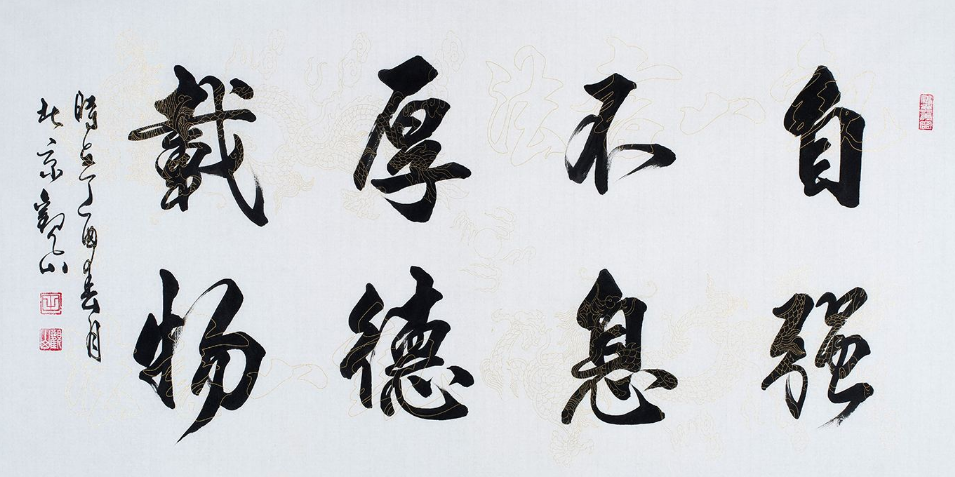 自强
不息
厚德
载物
時在丁酉春月
北京观山